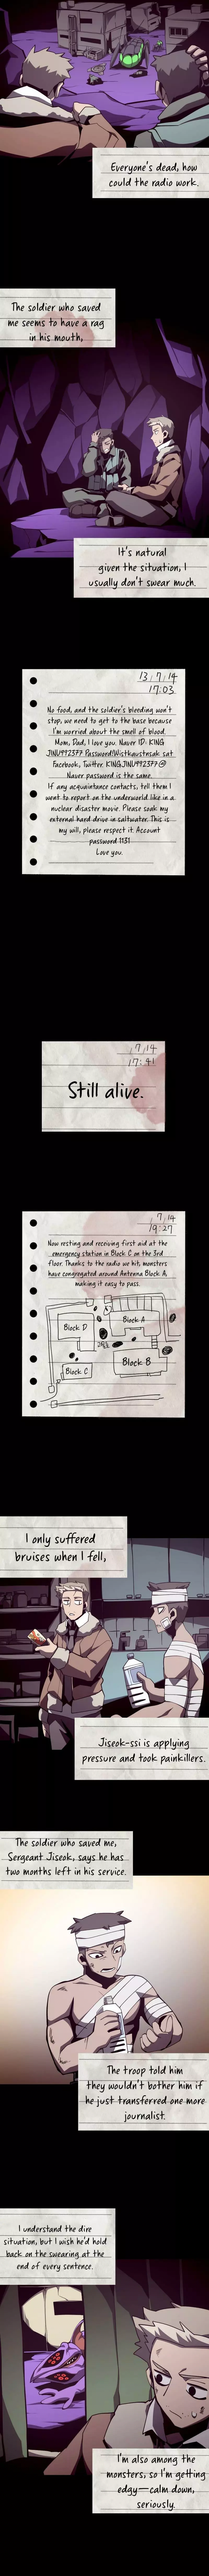 Everyone's dead, how
could the radio work.
The soldier who saved
me seems to have a rag
in his mouth,
It's natural
given the situation, I
usually don't swear much.
13/7/14
17:03
No food, and the soldier's bleeding won't
stop, we need to get to the base because
I'm worried about the smell of blood.
Mom, Dad, I love you. Naver ID: KING
Facebook, Twitter: KINGJINU992377@
Naver password is the same.
If any acquaintance contacts, tell them I
went to report on the underworld like in a
nuclear disaster movie. Please soak my
external hard drive in saltwater. This is
my will, please respect it. Account
password 1131
Love you.
/7/14
17:41
Still alive.
7/14
19:27
Now resting and receiving first aid at the
emergency station in Block C on the 3rd
floor. Thanks to the radio we hit, monsters
have congregated around Antenna Block A,
making it easy to pass.
Block D
Block A
Block C
Block B
I only suffered
bruises when I fell,
Jiseok-ssi is applying
pressure and took painkillers.
The soldier who saved me,
Sergeant Jiseok, says he has
two months left in his service.
The troop told him
they wouldn't bother him if
he just transferred one more
journalist.
I understand the dire
situation, but I wish he'd hold
back on the swearing at the
end of every sentence.
I'm also among the
monsters, so I'm getting
edgy—calm down,
seriously.